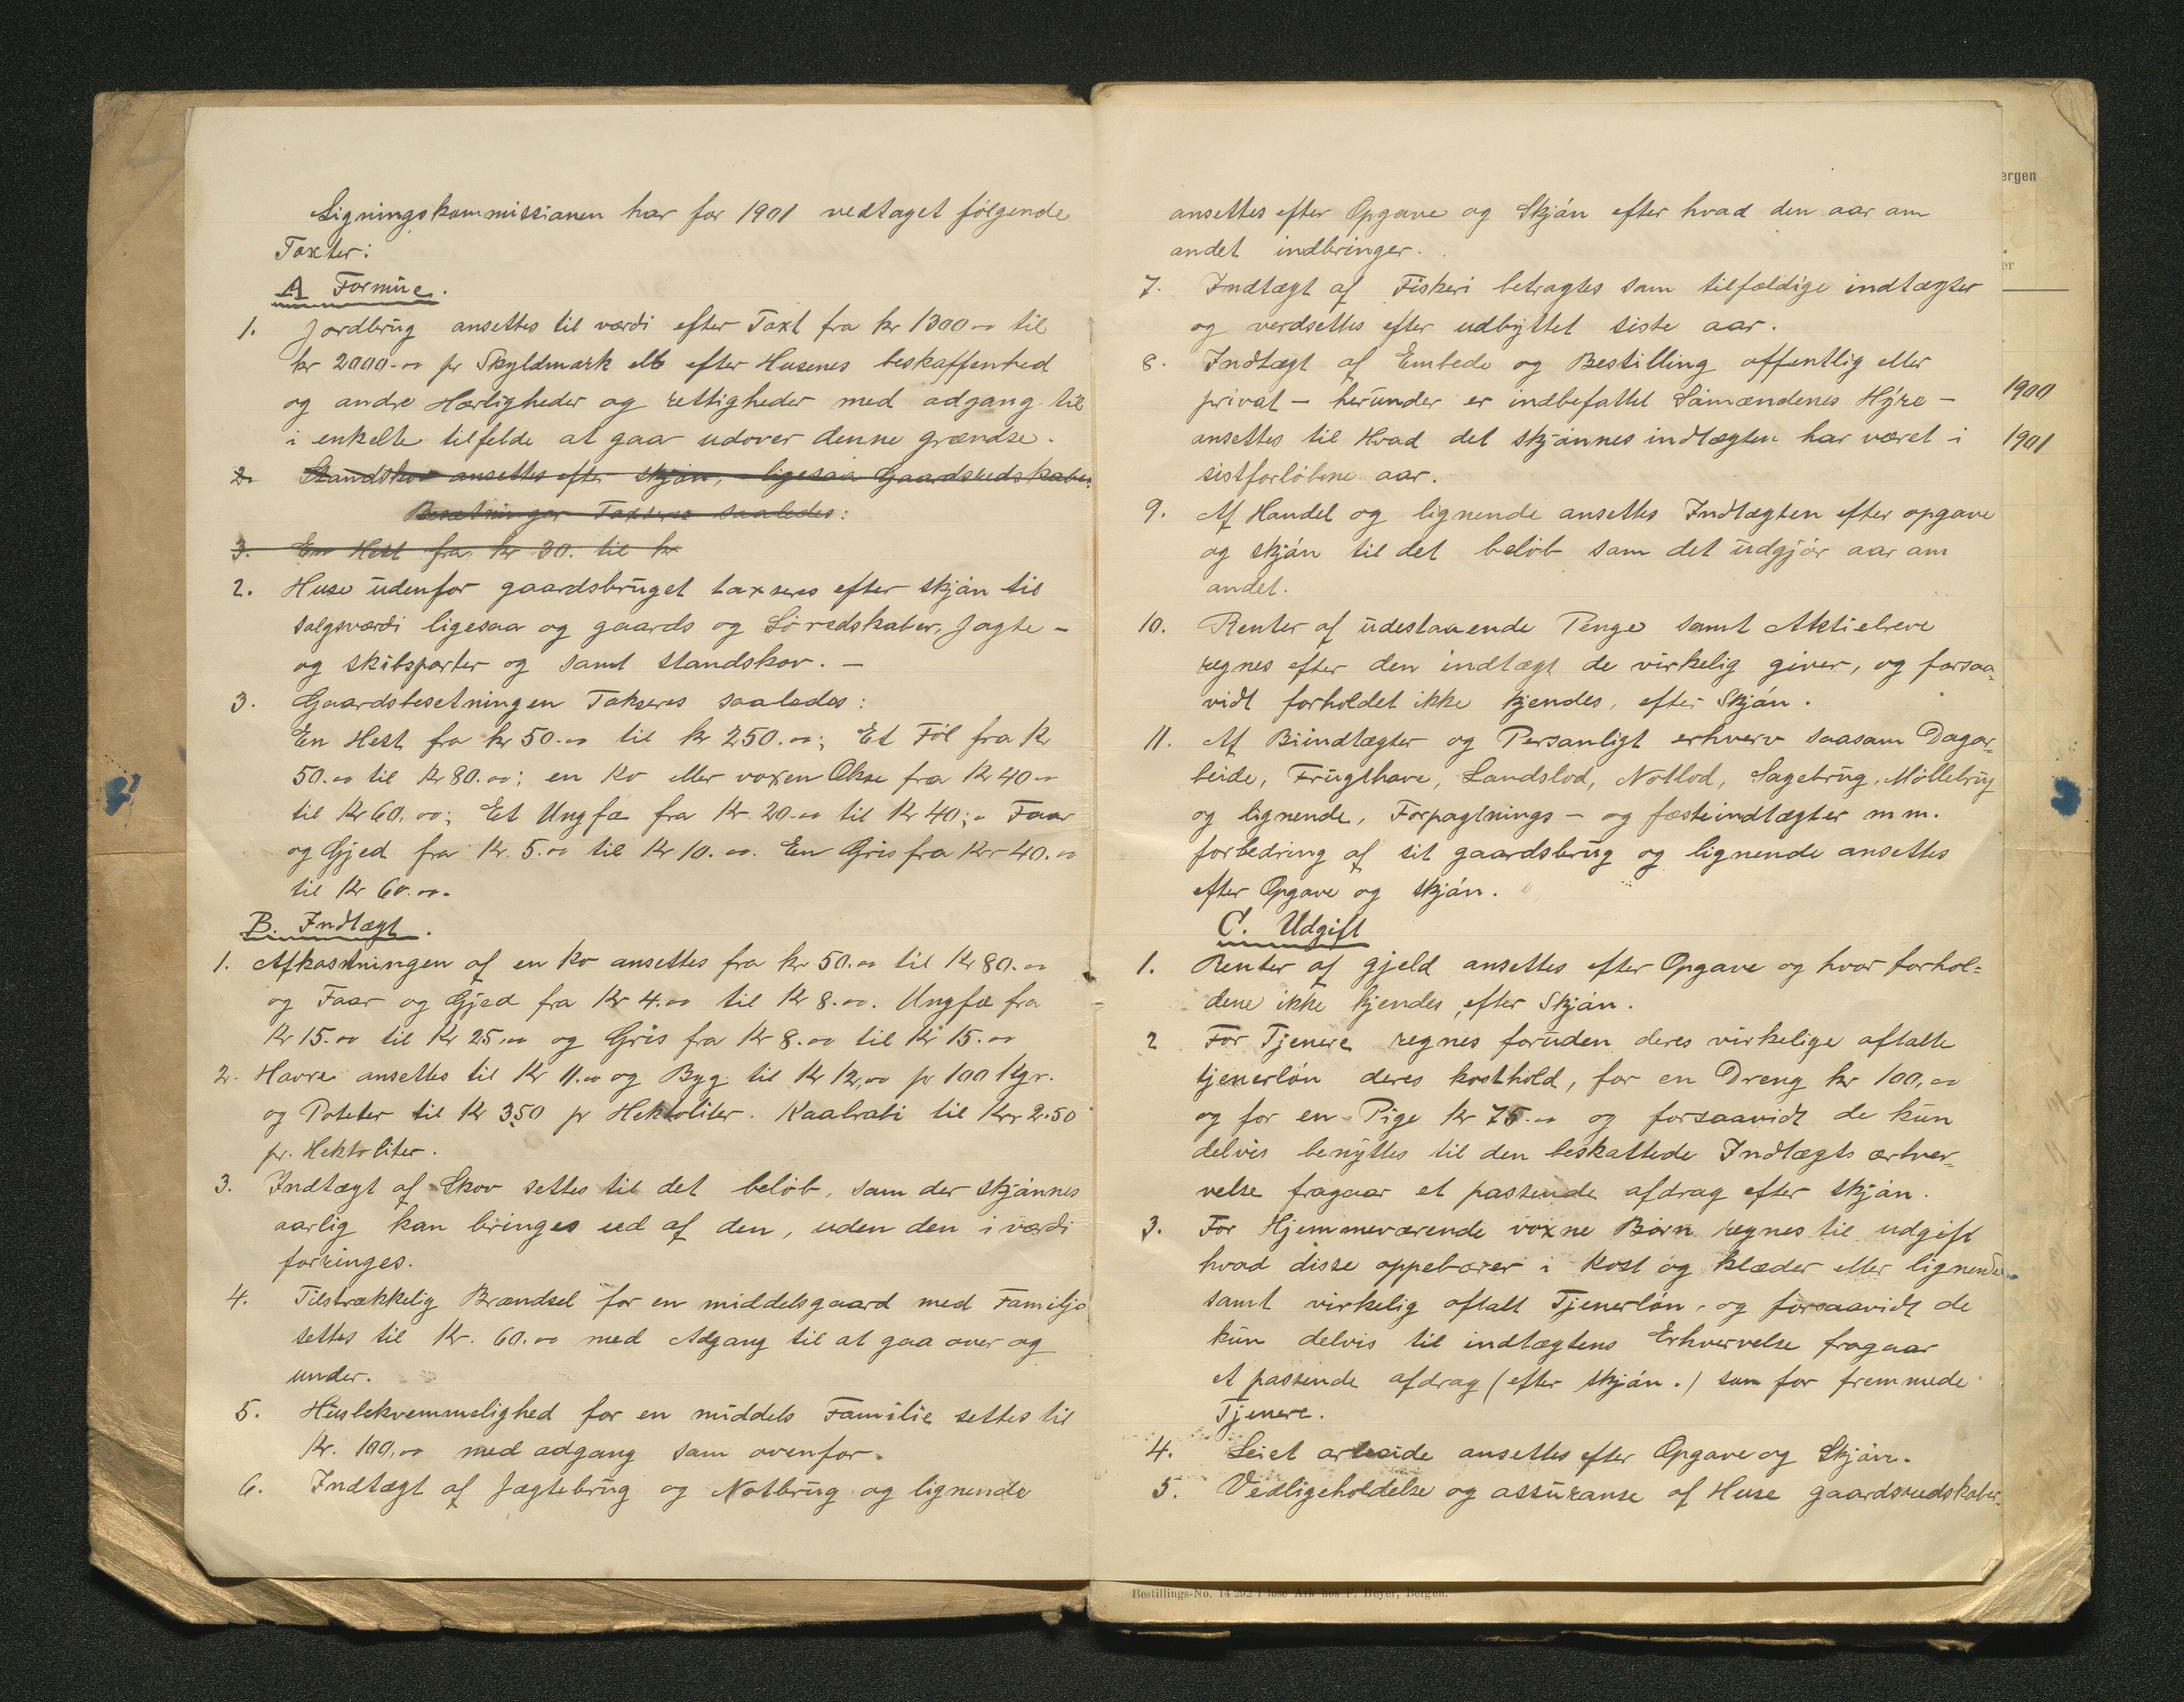 Ligningskommissionen har for 1901 vedtaget følgende
Taxter:
A Formue.
1. Jordbrug ansettes til værdi efter Taxt fra kr 1300.00 til
kr 2000.00 pr Skyldmark alt efter Husenes beskaffenhed
og andre Herligheder og rettigheder med adgang til
i enkelte tilfelde at gaa udover denne grændse.
2. Standskov ansettes efter skjøn, ligesaa Gaardsredskaber.
Besetninger Taxseres saaledes:
3. En Hest fra kr 30. til kr
2. Huse udenfor gaardsbruget taxseres efter skjøn til
salgsværdi ligesaa og gaards og Søredskaber, Jagte-
og skibsparter og samt standskov. –
3. Gaardsbesetningen Takseres saaledes:
En Hest fra kr 50.00 til kr 250.00; Et Føl fra Kr
50.00 til Kr 80.00; en Ko eller voxen Okse fra Kr 40.00
til Kr 60.00; Et Ungfæ fra Kr. 20.00 til Kr 40;0 Faar
og Gjed fra Kr. 5.00 til Kr 10.00. En Gris fra Kr 40.00
til Kr 60.00.
B. Indtægt.
1. Afkastningen af en Ko ansettes fra kr 50.00 til Kr 80.00
og Faar og Gjed fra Kr 4.00 til Kr 8.00. Ungfæ fra
Kr 15.00 til Kr 25,00 og Gris fra Kr 8.00 til Kr 15.00
2. Havre ansettes til Kr 11.00 og Byg til Kr 12,00 pr 100 Kgr.
og Poteter til Kr 3.50 pr Hektoliter. Kaalrabi til Kr 2.50
pr. Hektoliter.
3. Indtægt af Skov settes til det beløb, som der skjønnes
aarlig kan bringes ud af den, uden den i værdi
foringes.
4. Tilstrækkelig Brændsel for en middelsgaard med Familje
settes til Kr. 60.00 med Adgang til at gaa over og
under.
5. Huslekvemmelighed for en middels Familie settes til
Kr. 100,00 med adgang som ovenfor.
6. Indtægt af Jægtebrug og Notbrug og lignende
ansettes efter Opgave og Skjøn efter hvad den aar om
andet indbringer.
7. Indtægt af Fiskeri betragtes som tilfældige indtægter
og verdsettes efter udbyttet siste aar.
8. Indtægt af Embede og Bestilling offentlig eller
privat – herunder er indbefattet Sømændenes Hyre –
ansettes til Hvad det skjønnes indtægten har været i
sistforløbne aar.
9. Af Handel og lignende ansettes Indtægten efter opgave
og skjøn til det beløb som det udgjør aar om
andet.
10. Renter af udestaaende Penge samt Aktiebreve
regnes efter den indtægt de virkelig giver, og forsaa-
vidt forholdet ikke kjendes, efter Skjøn.
11. Af Biindtægter og Personligt erhverv saasom Dagar-
beide, Frugthave, Landslod, Notlod, Sagebrug, Møllebrug
og lignende, Forpagtnings – og festeindtægter m m.
forbedring af sit gaardsbrug og lignende ansettes
efter Opgave og skjøn.
C. Udgift
1. Renter af gjeld ansettes efter Opgave og hvor forhol=
dene ikke kjendes, efter Skjøn.
2 For Tjenere regnes foruden deres virkelige aftalte
tjenerløn deres kosthold, for en Dreng kr 100,00
og for en Pige kr 75.00 og forsaavidt de kun
delvis benyttes til den beskattede Indtægts erhver-
velse fragaar et passende afdrag efter skjøn.
3. For Hjemmeværende voxne Børn regnes til udgift
hvad disse oppebærer i Kost og klæder eller lignende
samt virkelig aftalt Tjenerløn, og forsaavidt de
kun delvis til indtægtens Erhvervelse fragaar
et passende afdrag (efter skjøn.) som for fremmede
Tjenere.
4. Leiet arbeide ansettes efter Opgave og Skjøn.
5. Vedligeholdelse og assuranse af Huse gaardsredskaber.
ergen
er
1900
1901
Bestillings-No. 14 292 i løse Ark hos F. Beyer, Bergen.